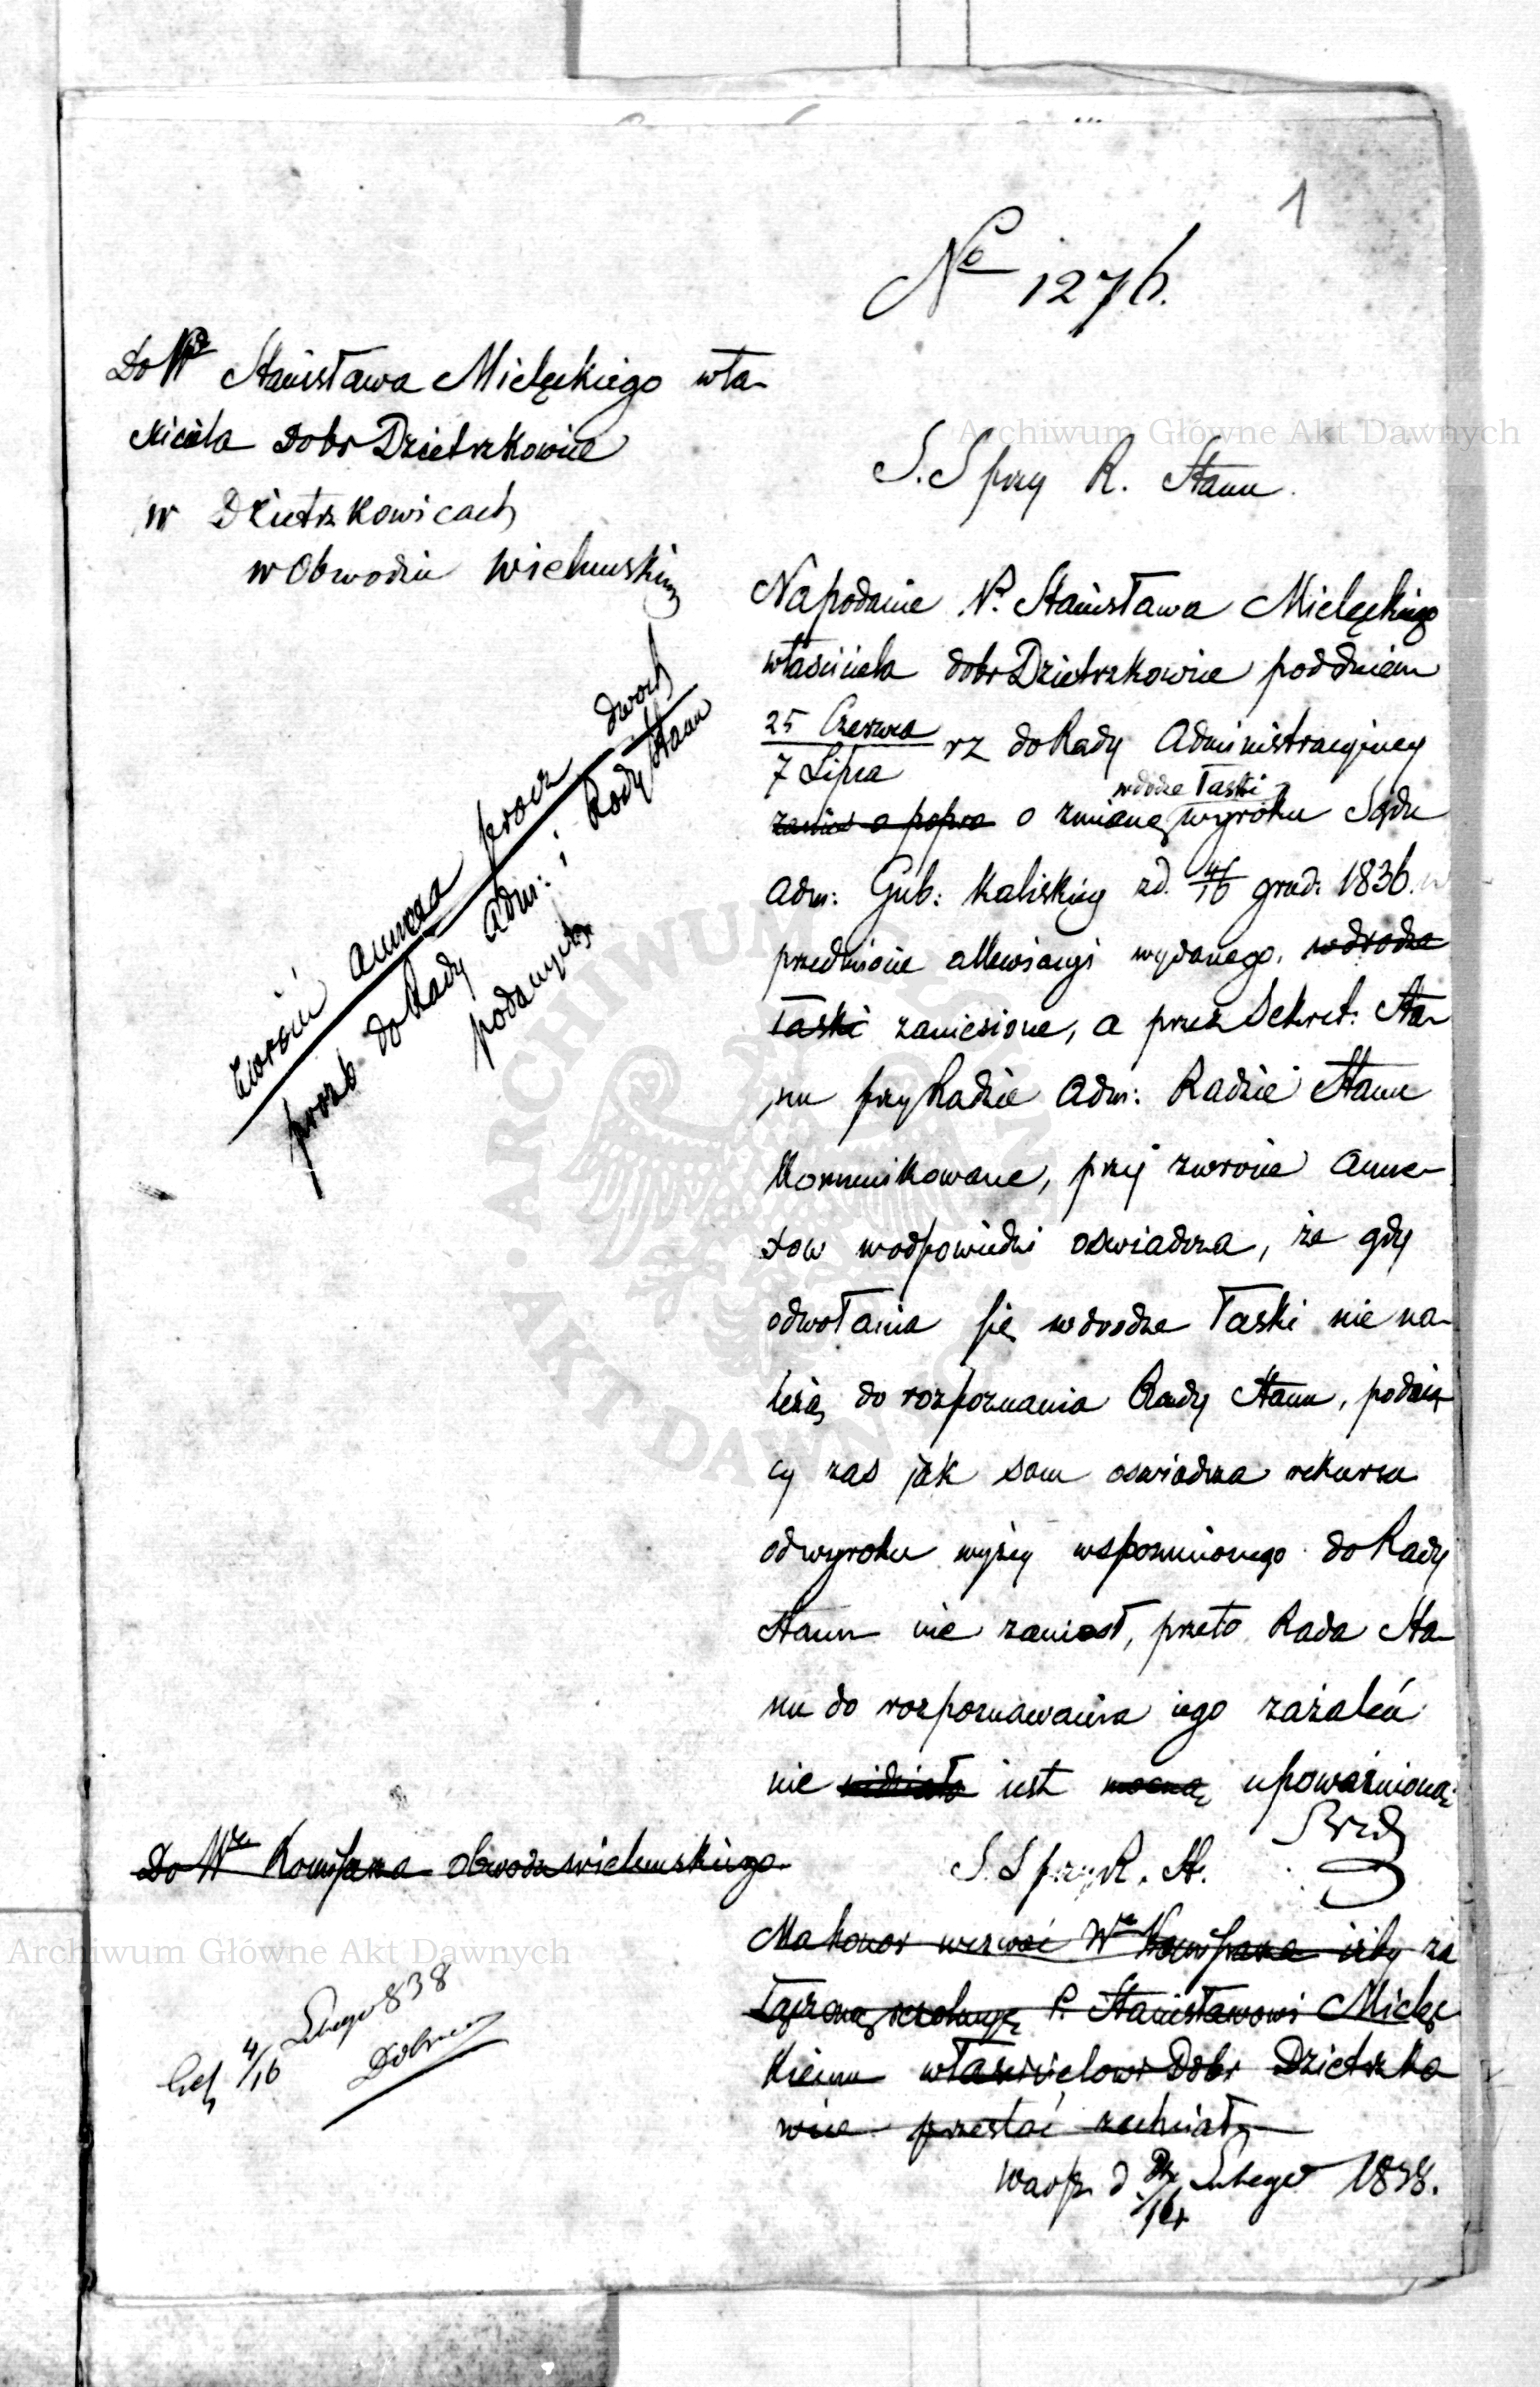 1
No 1276.
Do Wo Stanisława Mielęckiego wła-
ściciela Dobr Dzietrzkowice
w Dzietrzkowicach
w Obwodzie Wieluńskim
S. S przy R. Stanu.
zwrócić annexa procz dwoch
prozb do Rady Adm: i Rady Stanu
podanych
Na podanie P. Stanisława Mielęckiego
właściciela dobr Dzietrzkowice pod dniem
25 Czerwca
7 Lipca
rz do Rady Administracyjney
wdrodze łaski
zanios o popra o zmianę wyroku Sądu
Adm: Gub: Kaliskiey zd. 4/16 grud: 1836. w
przedmiocie allewiacyi wydanego, wdrodze
łaski zaniesione, a przez Sekret: Sta-
nu przy Radzie Adm: Radzie Stanu
kommunikowane, przy zwrocie anne-
xow wodpowiedzi oświadcza, że gdy
odwołania się wdrodze łaski nie na-
leżą do rozpoznania Rady Stanu, podaią
cy zas jak sam oswiadcza rekursu
od wyroku wyżey wspomnionego do Rady
Stanu nie zaniosł, przeto Rada Sta-
nu do rozpoznawania iego zażaleń
nie iest mocną upoważnioną
Do Wo Kommissarza obwodu wieluńskiego
S. S przy R. St.
Ma honor wezwać Wo Kommissarza iżby za
łączoną rezolucyę P. Stanisławowi Mielę
kiemu właścicielowi Dobr Dzietrzko
wice przesłać zechciał
4/16 Lutego 838
Warsz. d /16 Lutego 1838.
Archiwum Główne Akt Dawnych
Archiwum Główne Akt Dawnych
ARCHIWUM GŁÓWNE
AKT DAWNYCH